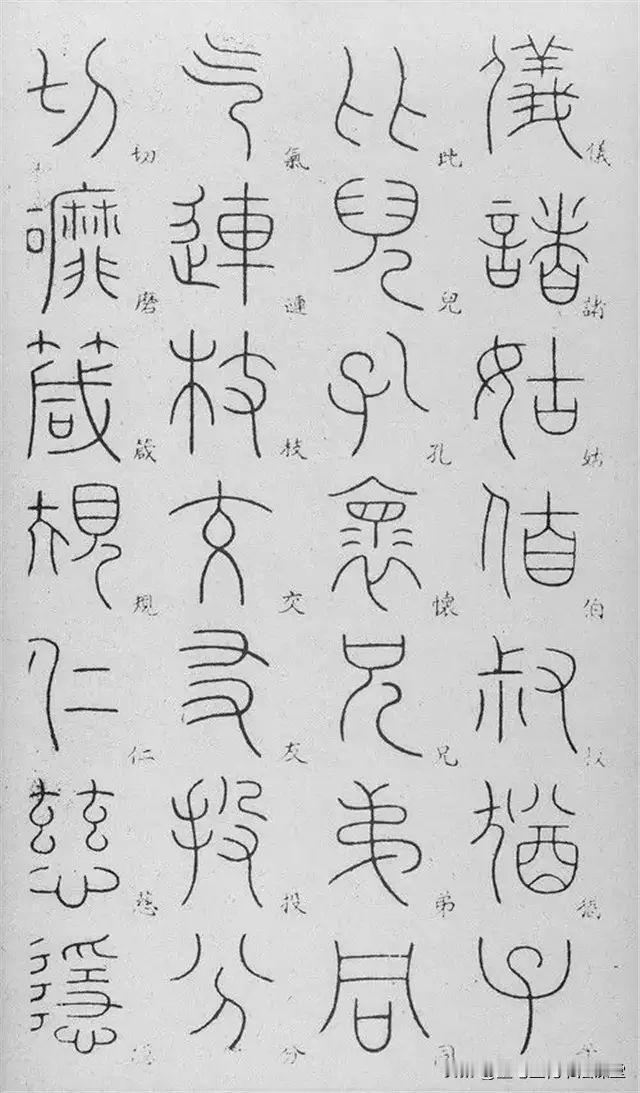 儀諸姑伯叔猶子
儀諸姑伯叔猶子
比兒孔懷兄弟同
此兒孔懷兄弟同
气連枝交友投分
氣連枝交友投分
切磨箴規仁慈隱
切磨箴規仁慈隱